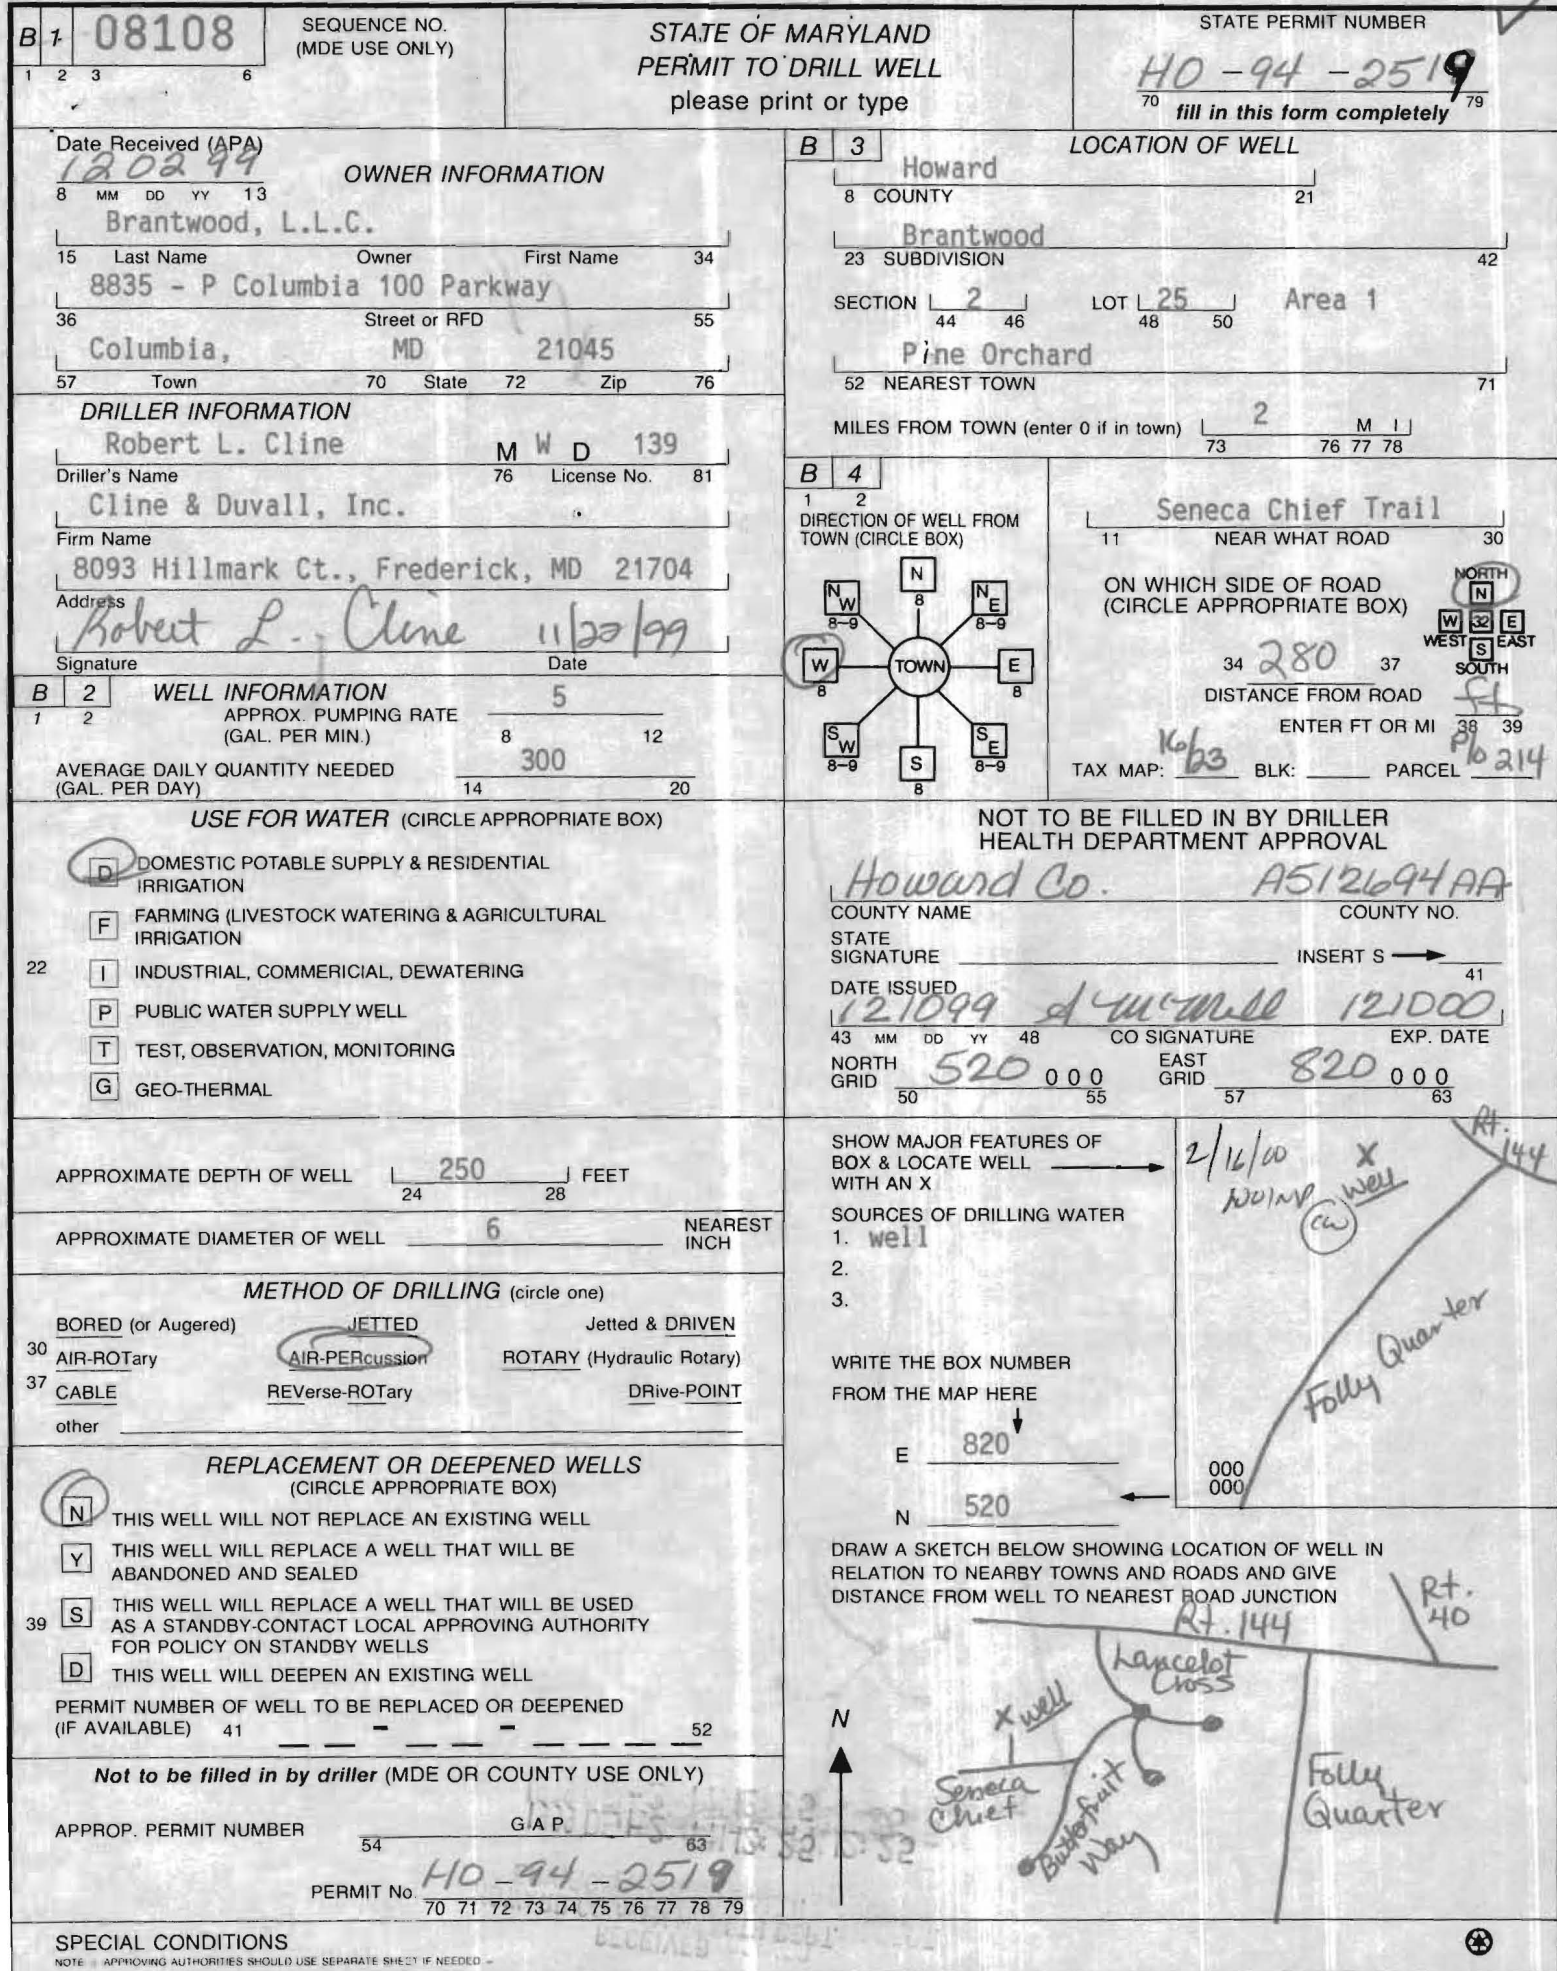 B 1 08108
1 2 3 6
SEQUENCE NO.
(MDE USE ONLY)
STATE OF MARYLAND
PERMIT TO DRILL WELL
please print or type
STATE PERMIT NUMBER
HO-94-2519
70 fill in this form completely 79
Date Received (APA)
120299
8 MM DD YY 13
OWNER INFORMATION
Brantwood, L.L.C.
15 Last Name Owner First Name 34
8835 - P Columbia 100 Parkway
36 Street or RFD 55
Columbia, MD 21045
57 Town 70 State 72 Zip 76
DRILLER INFORMATION
Robert L. Cline M W D 139
Driller's Name 76 License No. 81
Cline & Duvall, Inc.
Firm Name
8093 Hillmark Ct., Frederick, MD 21704
Address
Robert L. Cline 11/22/99
Signature Date
B 2 WELL INFORMATION
1 2
APPROX. PUMPING RATE 5
(GAL. PER MIN.) 8 12
AVERAGE DAILY QUANTITY NEEDED 300
(GAL. PER DAY) 14 20
USE FOR WATER (CIRCLE APPROPRIATE BOX)
D DOMESTIC POTABLE SUPPLY & RESIDENTIAL
IRRIGATION
F FARMING (LIVESTOCK WATERING & AGRICULTURAL
IRRIGATION
22 I INDUSTRIAL, COMMERICIAL, DEWATERING
P PUBLIC WATER SUPPLY WELL
T TEST, OBSERVATION, MONITORING
G GEO-THERMAL
APPROXIMATE DEPTH OF WELL 250 FEET
24 28
APPROXIMATE DIAMETER OF WELL 6 NEAREST
INCH
METHOD OF DRILLING (circle one)
BORED (or Augered) JETTED Jetted & DRIVEN
30 AIR-ROTary AIR-PERcussion ROTARY (Hydraulic Rotary)
37 CABLE REVerse-ROTary DRive-POINT
other
REPLACEMENT OR DEEPENED WELLS
(CIRCLE APPROPRIATE BOX)
N THIS WELL WILL NOT REPLACE AN EXISTING WELL
Y THIS WELL WILL REPLACE A WELL THAT WILL BE
ABANDONED AND SEALED
39 S THIS WELL WILL REPLACE A WELL THAT WILL BE USED
AS A STANDBY-CONTACT LOCAL APPROVING AUTHORITY
FOR POLICY ON STANDBY WELLS
D THIS WELL WILL DEEPEN AN EXISTING WELL
PERMIT NUMBER OF WELL TO BE REPLACED OR DEEPENED
(IF AVAILABLE) 41 - - 52
Not to be filled in by driller (MDE OR COUNTY USE ONLY)
APPROP. PERMIT NUMBER G A P
54 63
PERMIT No. HO-94-2519
70 71 72 73 74 75 76 77 78 79
SPECIAL CONDITIONS
NOTE APPROVING AUTHORITIES SHOULD USE SEPARATE SHEET IF NEEDED
B 3 LOCATION OF WELL
Howard
8 COUNTY 21
Brantwood
23 SUBDIVISION 42
SECTION 2 LOT 25 Area 1
44 46 48 50
Pine Orchard
52 NEAREST TOWN 71
MILES FROM TOWN (enter 0 if in town) 2 M I
73 76 77 78
B 4
1 2
DIRECTION OF WELL FROM
TOWN (CIRCLE BOX)
N
8
NW
8-9
NE
8-9
W
8
TOWN
E
8
SW
8-9
S
8
SE
8-9
Seneca Chief Trail
11 NEAR WHAT ROAD 30
ON WHICH SIDE OF ROAD
(CIRCLE APPROPRIATE BOX)
NORTH
N
W 32 E
WEST S EAST
SOUTH
34 280 37
DISTANCE FROM ROAD
ft
ENTER FT OR MI 38 39
TAX MAP: 16/23 BLK: PARCEL P/o 214
NOT TO BE FILLED IN BY DRILLER
HEALTH DEPARTMENT APPROVAL
Howard Co. A512694AA
COUNTY NAME COUNTY NO.
STATE
SIGNATURE INSERT S
41
DATE ISSUED
121099 121000
43 MM DD YY 48 CO SIGNATURE EXP. DATE
NORTH
GRID 520 000
50 55
EAST
GRID 820 000
57 63
SHOW MAJOR FEATURES OF
BOX & LOCATE WELL
WITH AN X
SOURCES OF DRILLING WATER
1. well
2.
3.
WRITE THE BOX NUMBER
FROM THE MAP HERE
E 820
N 520
2/16/00
X
well
Rt. 144
Folly Quarter
000
000
DRAW A SKETCH BELOW SHOWING LOCATION OF WELL IN
RELATION TO NEARBY TOWNS AND ROADS AND GIVE
DISTANCE FROM WELL TO NEAREST ROAD JUNCTION
Rt. 144
Rt. 40
Lancelot
Cross
X well
N
Seneca
Chief
Butterfruit
Way
Folly
Quarter